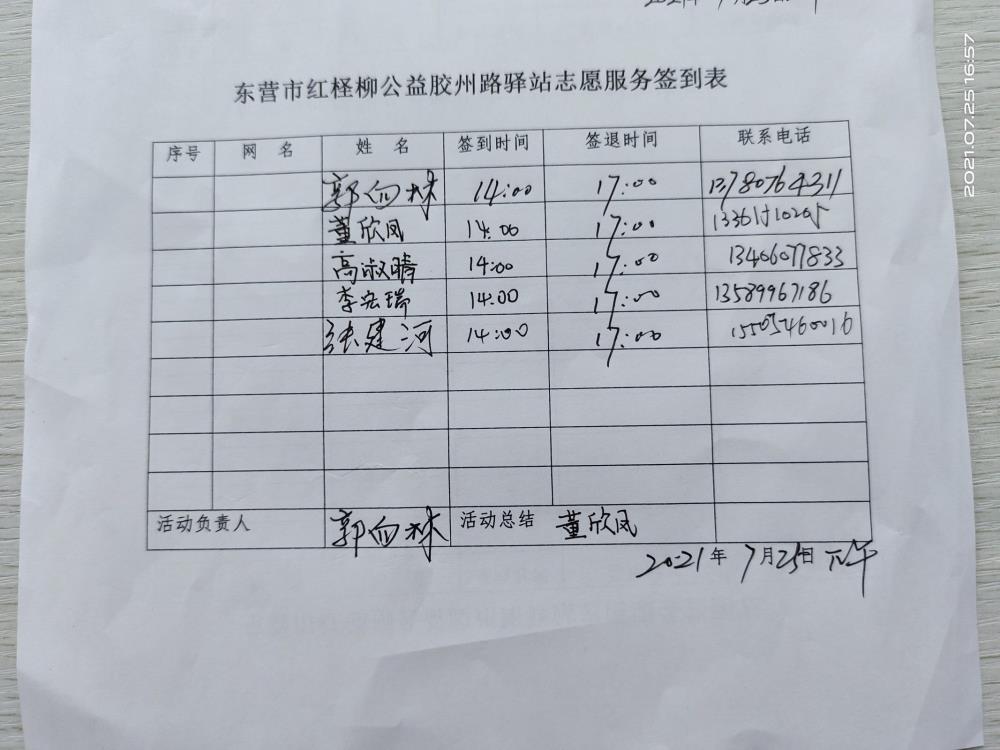 东营市红柽柳公益胶州路驿站志愿服务签到表
序号 网 名 姓 名 签到时间 签退时间 联系电话
郭向林 14:00 17:00 13780764311
董欣凤 14:00 17:00 13361510205
高淑晴 14:00 17:00 13406077833
李宏瑞 14:00 17:00 13589967186
张建河 14:00 17:00 15505460016
活动负责人 郭向林 活动总结 董欣凤
2021年 7月25日 下午
2021.07.25 16:57